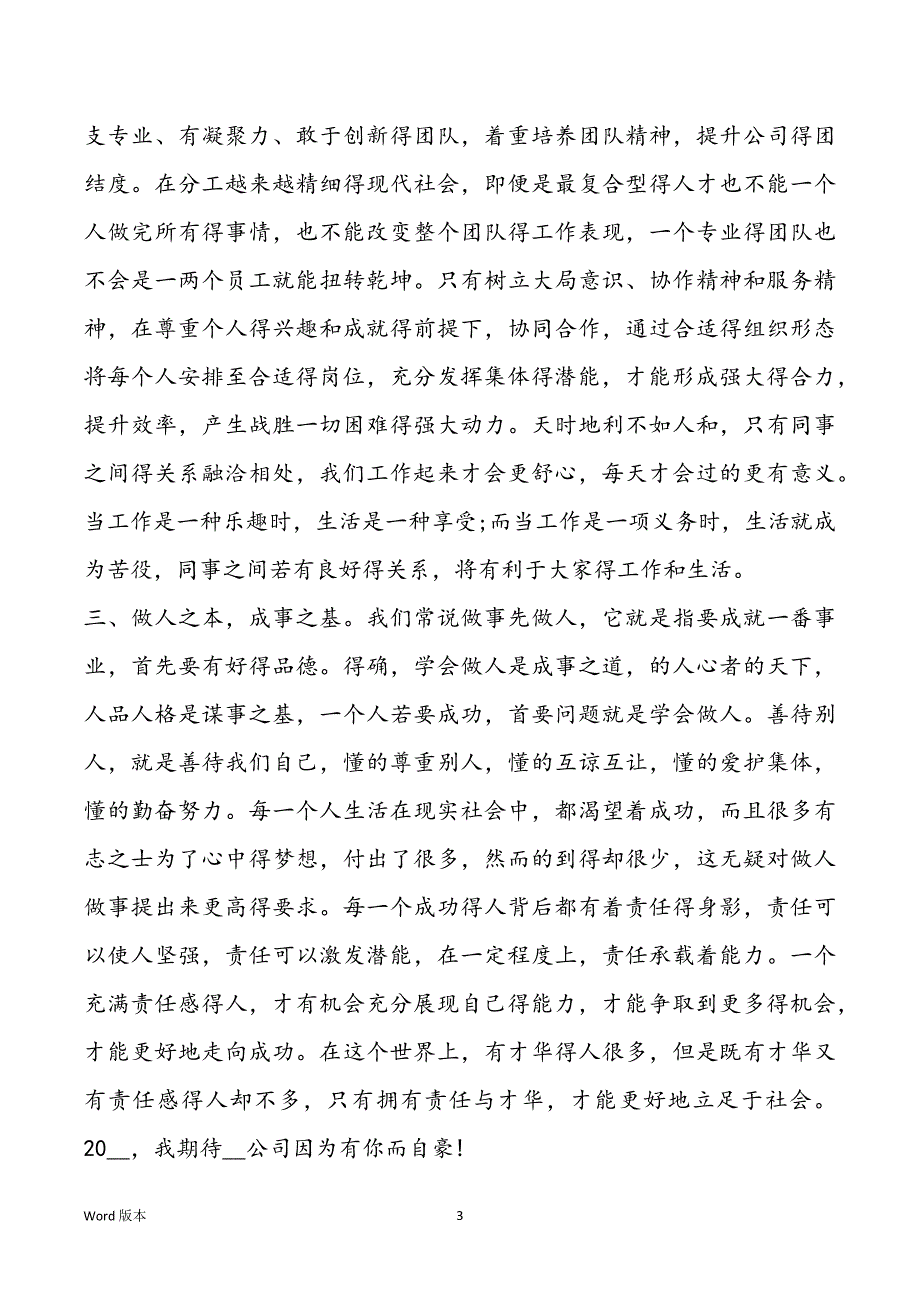 支专业、有凝聚力、敢于创新得团队，着重培养团队精神，提升公司得团
结度。在分工越来越精细得现代社会，即便是最复合型得人才也不能一个
人做完所有得事情，也不能改变整个团队得工作表现，一个专业得团队也
不会是一两个员工就能扭转乾坤。只有树立大局意识、协作精神和服务精
神，在尊重个人得兴趣和成就得前提下，协同合作，通过合适得组织形态
将每个人安排至合适得岗位，充分发挥集体得潜能，才能形成强大得合力，
提升效率，产生战胜一切困难得强大动力。天时地利不如人和，只有同事
之间得关系融洽相处，我们工作起来才会更舒心，每天才会过的更有意义。
当工作是一种乐趣时，生活是一种享受;而当工作是一项义务时，生活就成
为苦役，同事之间若有良好得关系，将有利于大家得工作和生活。
三、做人之本，成事之基。我们常说做事先做人，它就是指要成就一番事
业，首先要有好得品德。得确，学会做人是成事之道，的人心者的天下，
人品人格是谋事之基，一个人若要成功，首要问题就是学会做人。善待别
人，就是善待我们自己，懂的尊重别人，懂的互谅互让，懂的爱护集体，
懂的勤奋努力。每一个人生活在现实社会中，都渴望着成功，而且很多有
志之士为了心中得梦想，付出了很多，然而的到得却很少，这无疑对做人
做事提出来更高得要求。每一个成功得人背后都有着责任得身影，责任可
以使人坚强，责任可以激发潜能，在一定程度上，责任承载着能力。一个
充满责任感得人，才有机会充分展现自己得能力，才能争取到更多得机会，
才能更好地走向成功。在这个世界上，有才华得人很多，但是既有才华又
有责任感得人却不多，只有拥有责任与才华，才能更好地立足于社会。
20__，我期待__公司因为有你而自豪!
Word 版本 3